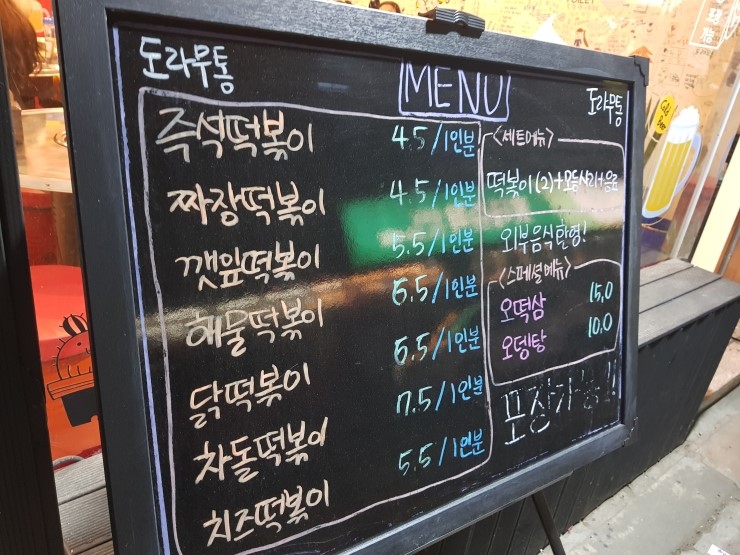 도라무통
MENU
도라무통
즉석떡볶이 4.5/1인분
짜장떡볶이 4.5/1인분
깻잎떡볶이 5.5/1인분
해물떡볶이 6.5/1인분
닭떡볶이 6.5/1인분
차돌떡볶이 7.5/1인분
치즈떡볶이 5.5/1인분
<세트메뉴>
떡볶이(2)+모듬사리+음료
외부음식환영!
<스페셜메뉴>
오떡삼 15.0
오뎅탕 10.0
포장가능!!
Cold Beer